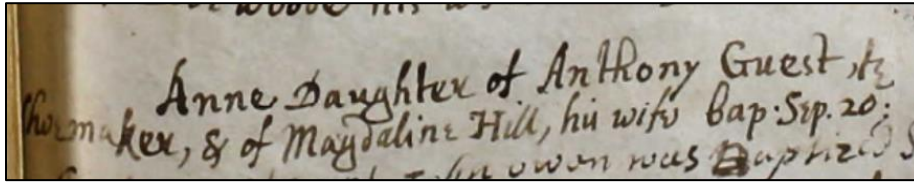 Anne Daughter of Anthony Guest, ye
shoemaker, & of Magdaline Hill, his wife bap. Sep. 20:
owen was Baptized